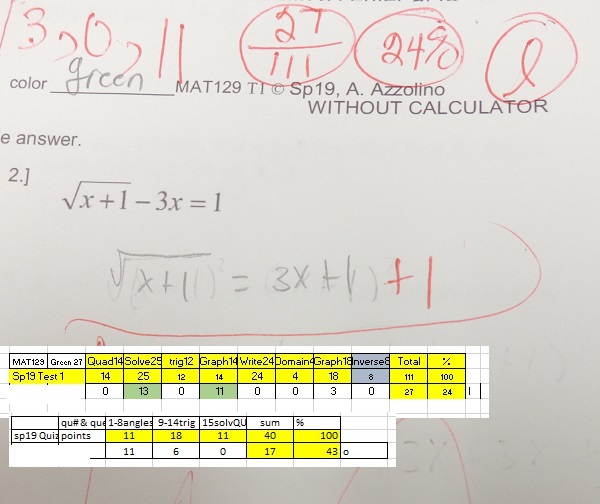 13, 0, 11 27/111 24% l
color green MAT129 T1 © Sp19, A. Azzolino
WITHOUT CALCULATOR
e answer.
2.] √x+1 − 3x = 1
√(x+1) = (3x+1) +1
MAT129 Green 27 Quad14 Solve25 trig12 Graph14 Write24 Domain4 Graph18 Inverse8 Total %
Sp19 Test 1 14 25 12 14 24 4 18 8 111 100
0 13 0 11 0 0 3 0 27 24 l
qu# & que 1-8angles 9-14trig 15solvQU sum %
sp19 Quiz points 11 18 11 40 100
11 6 0 17 43 o